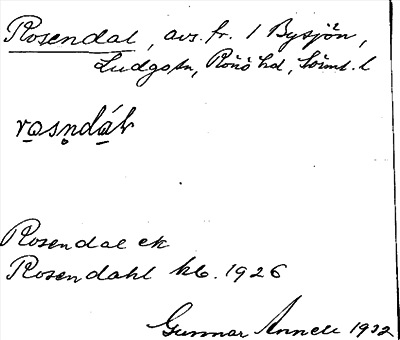 Rosendal, avs. fr. 1 Bysjön,
Ludgo sn, Rönö hd, Söml. l
rasndáḷ
Rosendal ek
Rosendahl kb. 1926
Gunnar Annell 1932